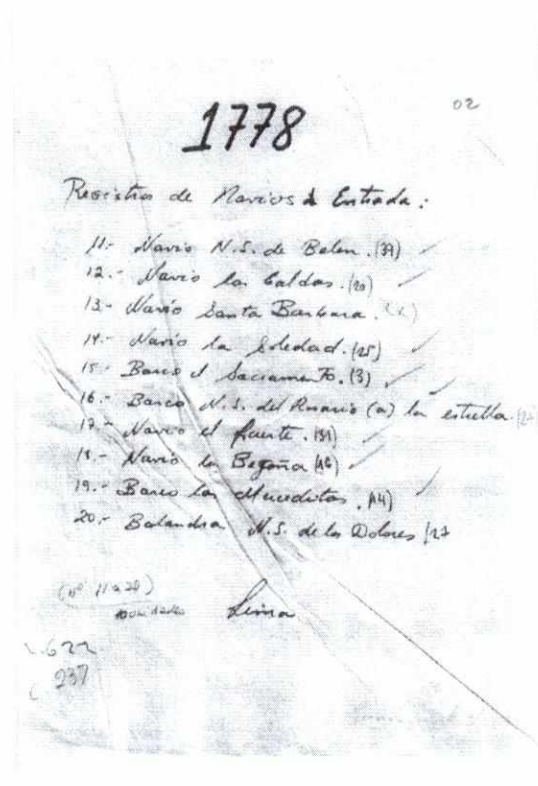 02
1778
Registros de Navios de Entrada:
11.- Navio N.S. de Belen. (39)
12.- Navio las Caldas. (20)
13.- Navio Santa Barbara.
14.- Navio la Soledad. (25)
15.- Barco el Sacramento. (3)
16.- Barco N.S. del Rosario (a) la estrella.
17.- Navio el fuerte. (31)
18.- Navio la Begoña (16)
19.- Barco las Mercedita. (14)
20.- Balandra N.S. de los Dolores (27
(nº 11 a 20)
Lima
237